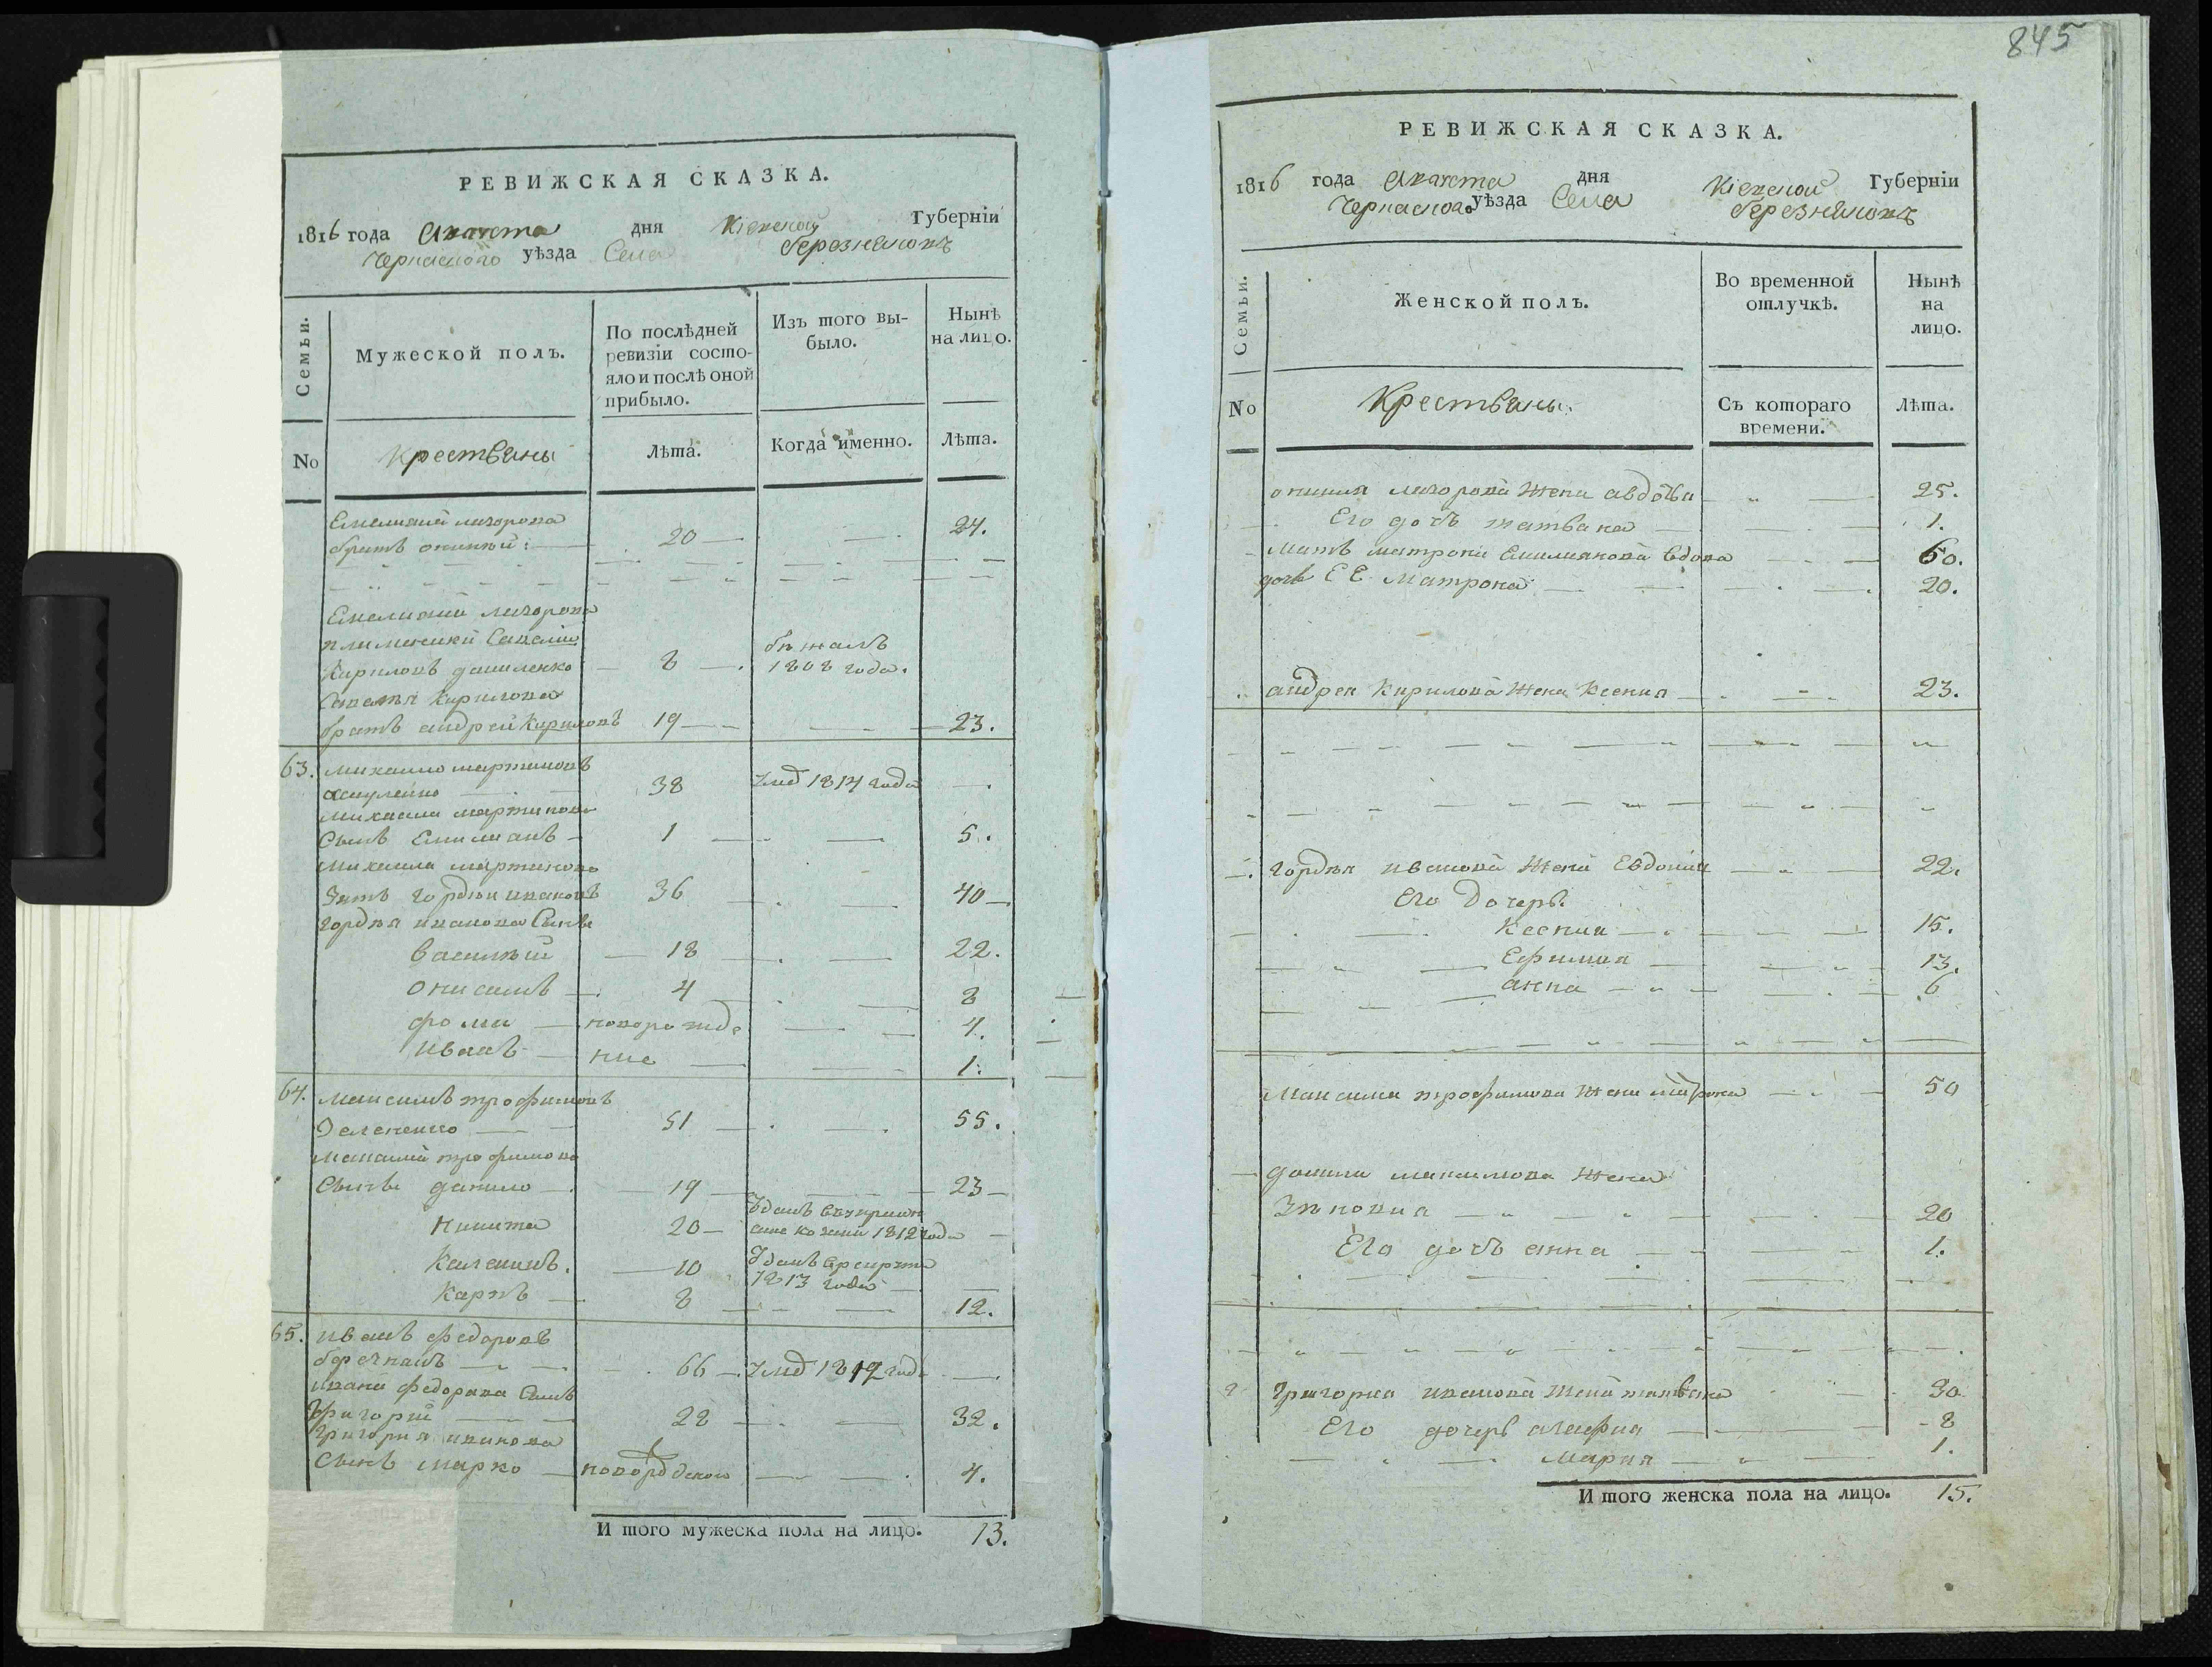 РЕВИЖСКАЯ СКАЗКА.
1816 года Августа дня Кіевской Губерніи
Черкаского уѣзда Села березняковъ
Семьи.
Мужеской полъ.
По послѣдней ревизіи состо-
яло и послѣ оной прибыло.
Изъ того вы-
было.
Нынѣ
на лицо.
No
Крестьяны
Лѣта.
Когда именно.
Лѣта.
Емелияна
братъ 20 24.
Емелияна
племеникъ
Кирилова даниленко 8 бежалъ 1808 года.
Кирилова
братъ андрей Кириловъ 19 23.
63. михайло мартиновъ
38 Умер 1814 года
михаила мартинова
Сынъ Емилианъ 1 5.
михаила мартинова
Зять гордѣй ивановъ 36 40
гордѣя иванова Сыны
василѣй 18 22.
онисимъ 4 8
фома новорожде 4.
иванъ ние 1.
64. максимъ трофимовъ
51 55.
максима трофимова
Сыны данило 19 23
Никита 20 1812 года
10 Зданъ врекруты 1813 года
Карпъ 8 12.
65. иванъ федоровъ
66 Умер 1812 года
ивана федорова Сынъ
Григорий 28 32.
Григория иванова
Сынъ марко 4.
И того мужеска пола на лицо. 13.
845
РЕВИЖСКАЯ СКАЗКА.
1816 года Августа дня Кіевской Губерніи
Черкаского уѣзда Села березняковъ
Семьи.
Женской полъ.
Во временной
отлучкѣ.
Нынѣ
на
лицо.
No
Крестьяны.
Съ котораго
времени.
Лѣта.
жена авдотья 25.
Его дочь татьяна 1.
мать матрона Емилиянова вдова 60.
дочь ЕЕ матрона 20.
андрея Кирилова жена Ксения 23.
гордѣя иванова жена Евдокия 22.
Его Дочеры
Ксения 15.
Ефимия 13.
анна 6
максима трофимова жена 50
данила максимова жена
Зѣновия 20
Его дочь анна 1.
Григория иванова жена татьяна 30
Его дочеры 8
Мария 1.
И того женска пола на лицо. 15.